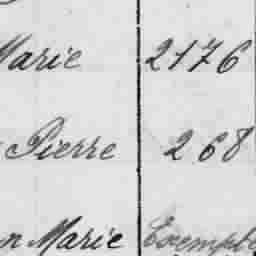 Marie 2176
Pierre 268
n Marie Exempte